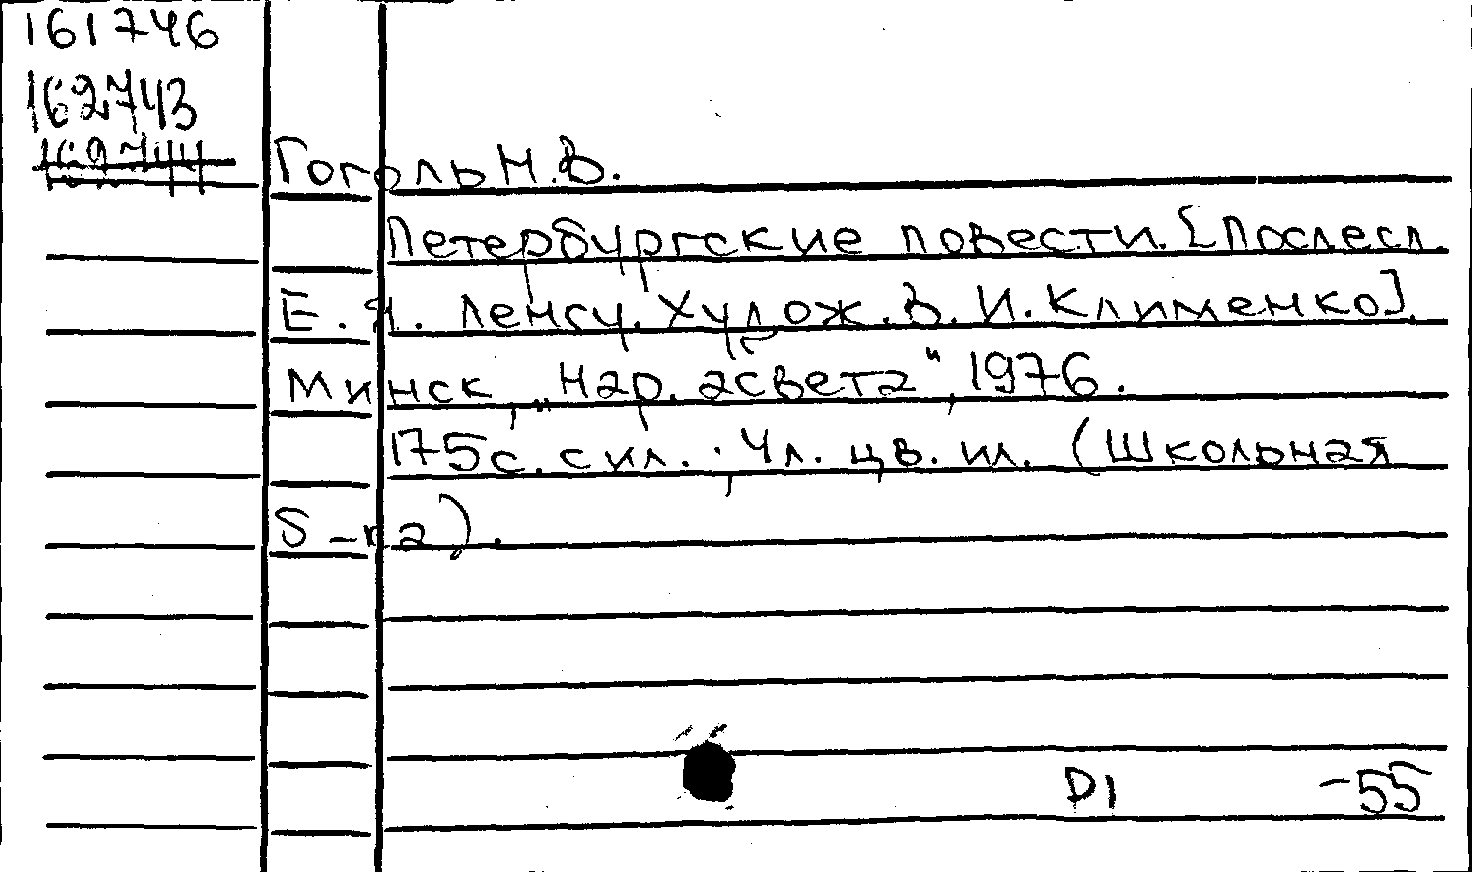 161746
162743
162744
Гоголь Н.В.
Петербургские повести. [Послесл.
Е.Я. Ленсу. Худож. В.И. Клименко].
Минск, „Нар. асвета", 1976.
175с. с ил.; 4л. цв. ил. (Школьная
б-ка).
P1 -55